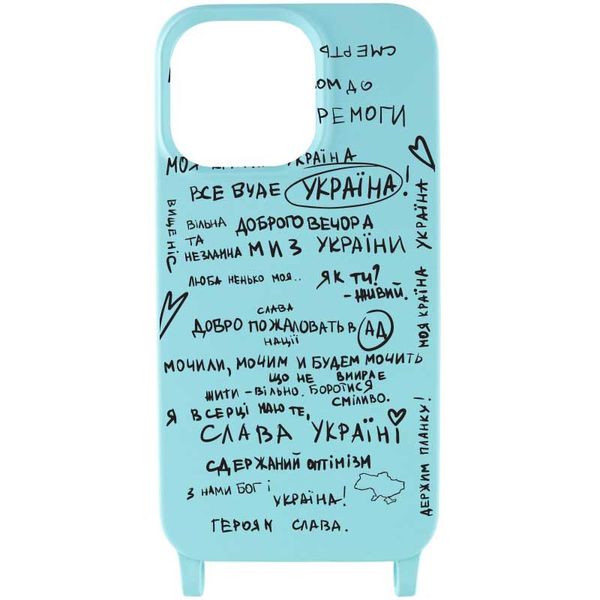 СМЕРТЬ
ОМ ДО
РЕМОГИ
МОЯ КРАЇНА УКРАЇНА
ВСЕ БУДЕ УКРАЇНА!
ВИЩЕ НІС
ВІЛЬНА
ТА
НЕЗЛАМНА
ДОБРОГО ВЕЧОРА
МИ З УКРАЇНИ
ЛЮБА НЕНЬКО МОЯ..
ЯК ТИ?
- ЖИВИЙ.
МОЯ КРАЇНА УКРАЇНА
СЛАВА
ДОБРО ПОЖАЛОВАТЬ В АД
НАЦІЇ
МОЧИЛИ, МОЧИМ И БУДЕМ МОЧИТЬ
ЩО НЕ ВМИРАЕ
ЖИТИ - ВІЛЬНО. БОРОТИСЯ
СМІЛИВО.
Я В СЕРЦІ МАЮ ТЕ,
СЛАВА УКРАЇНІ
СДЕРЖАНИЙ ОПТІМІЗМ
З НАМИ БОГ І
УКРАЇНА!
ГЕРОЯМ СЛАВА.
ДЕРЖИМ ПЛАНКУ!